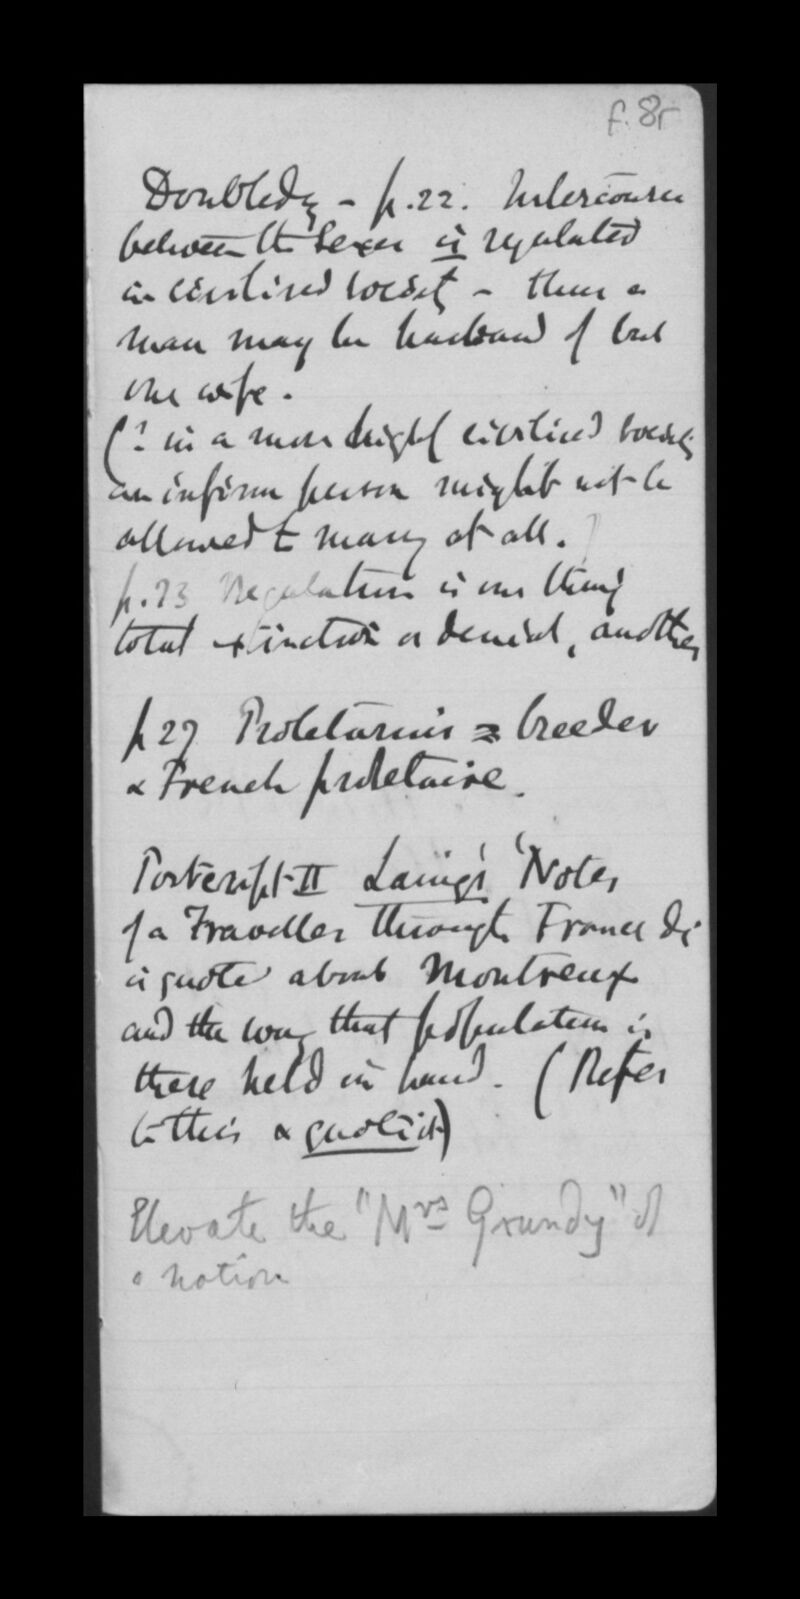 f. 8r
Doubleday – p. 22. Intercourse
between the Sexes is regulated
in civilised society – thus a
man may be husband of but
one wife.
(? in a more highly civilised society
an infirm person might not be
allowed to marry at all.)
p. 23 Regulation is one thing
total extinction or denial, another
p 27 Proletarius = breeder
& French proletaire.
Postcript II Laing's 'Notes
of a Traveller through France &c
is quoted about Montreux
and the way that population is
there held in hand. (Refer
to this & quote it)
Elevate the "Mrs Grundy" of
a nation